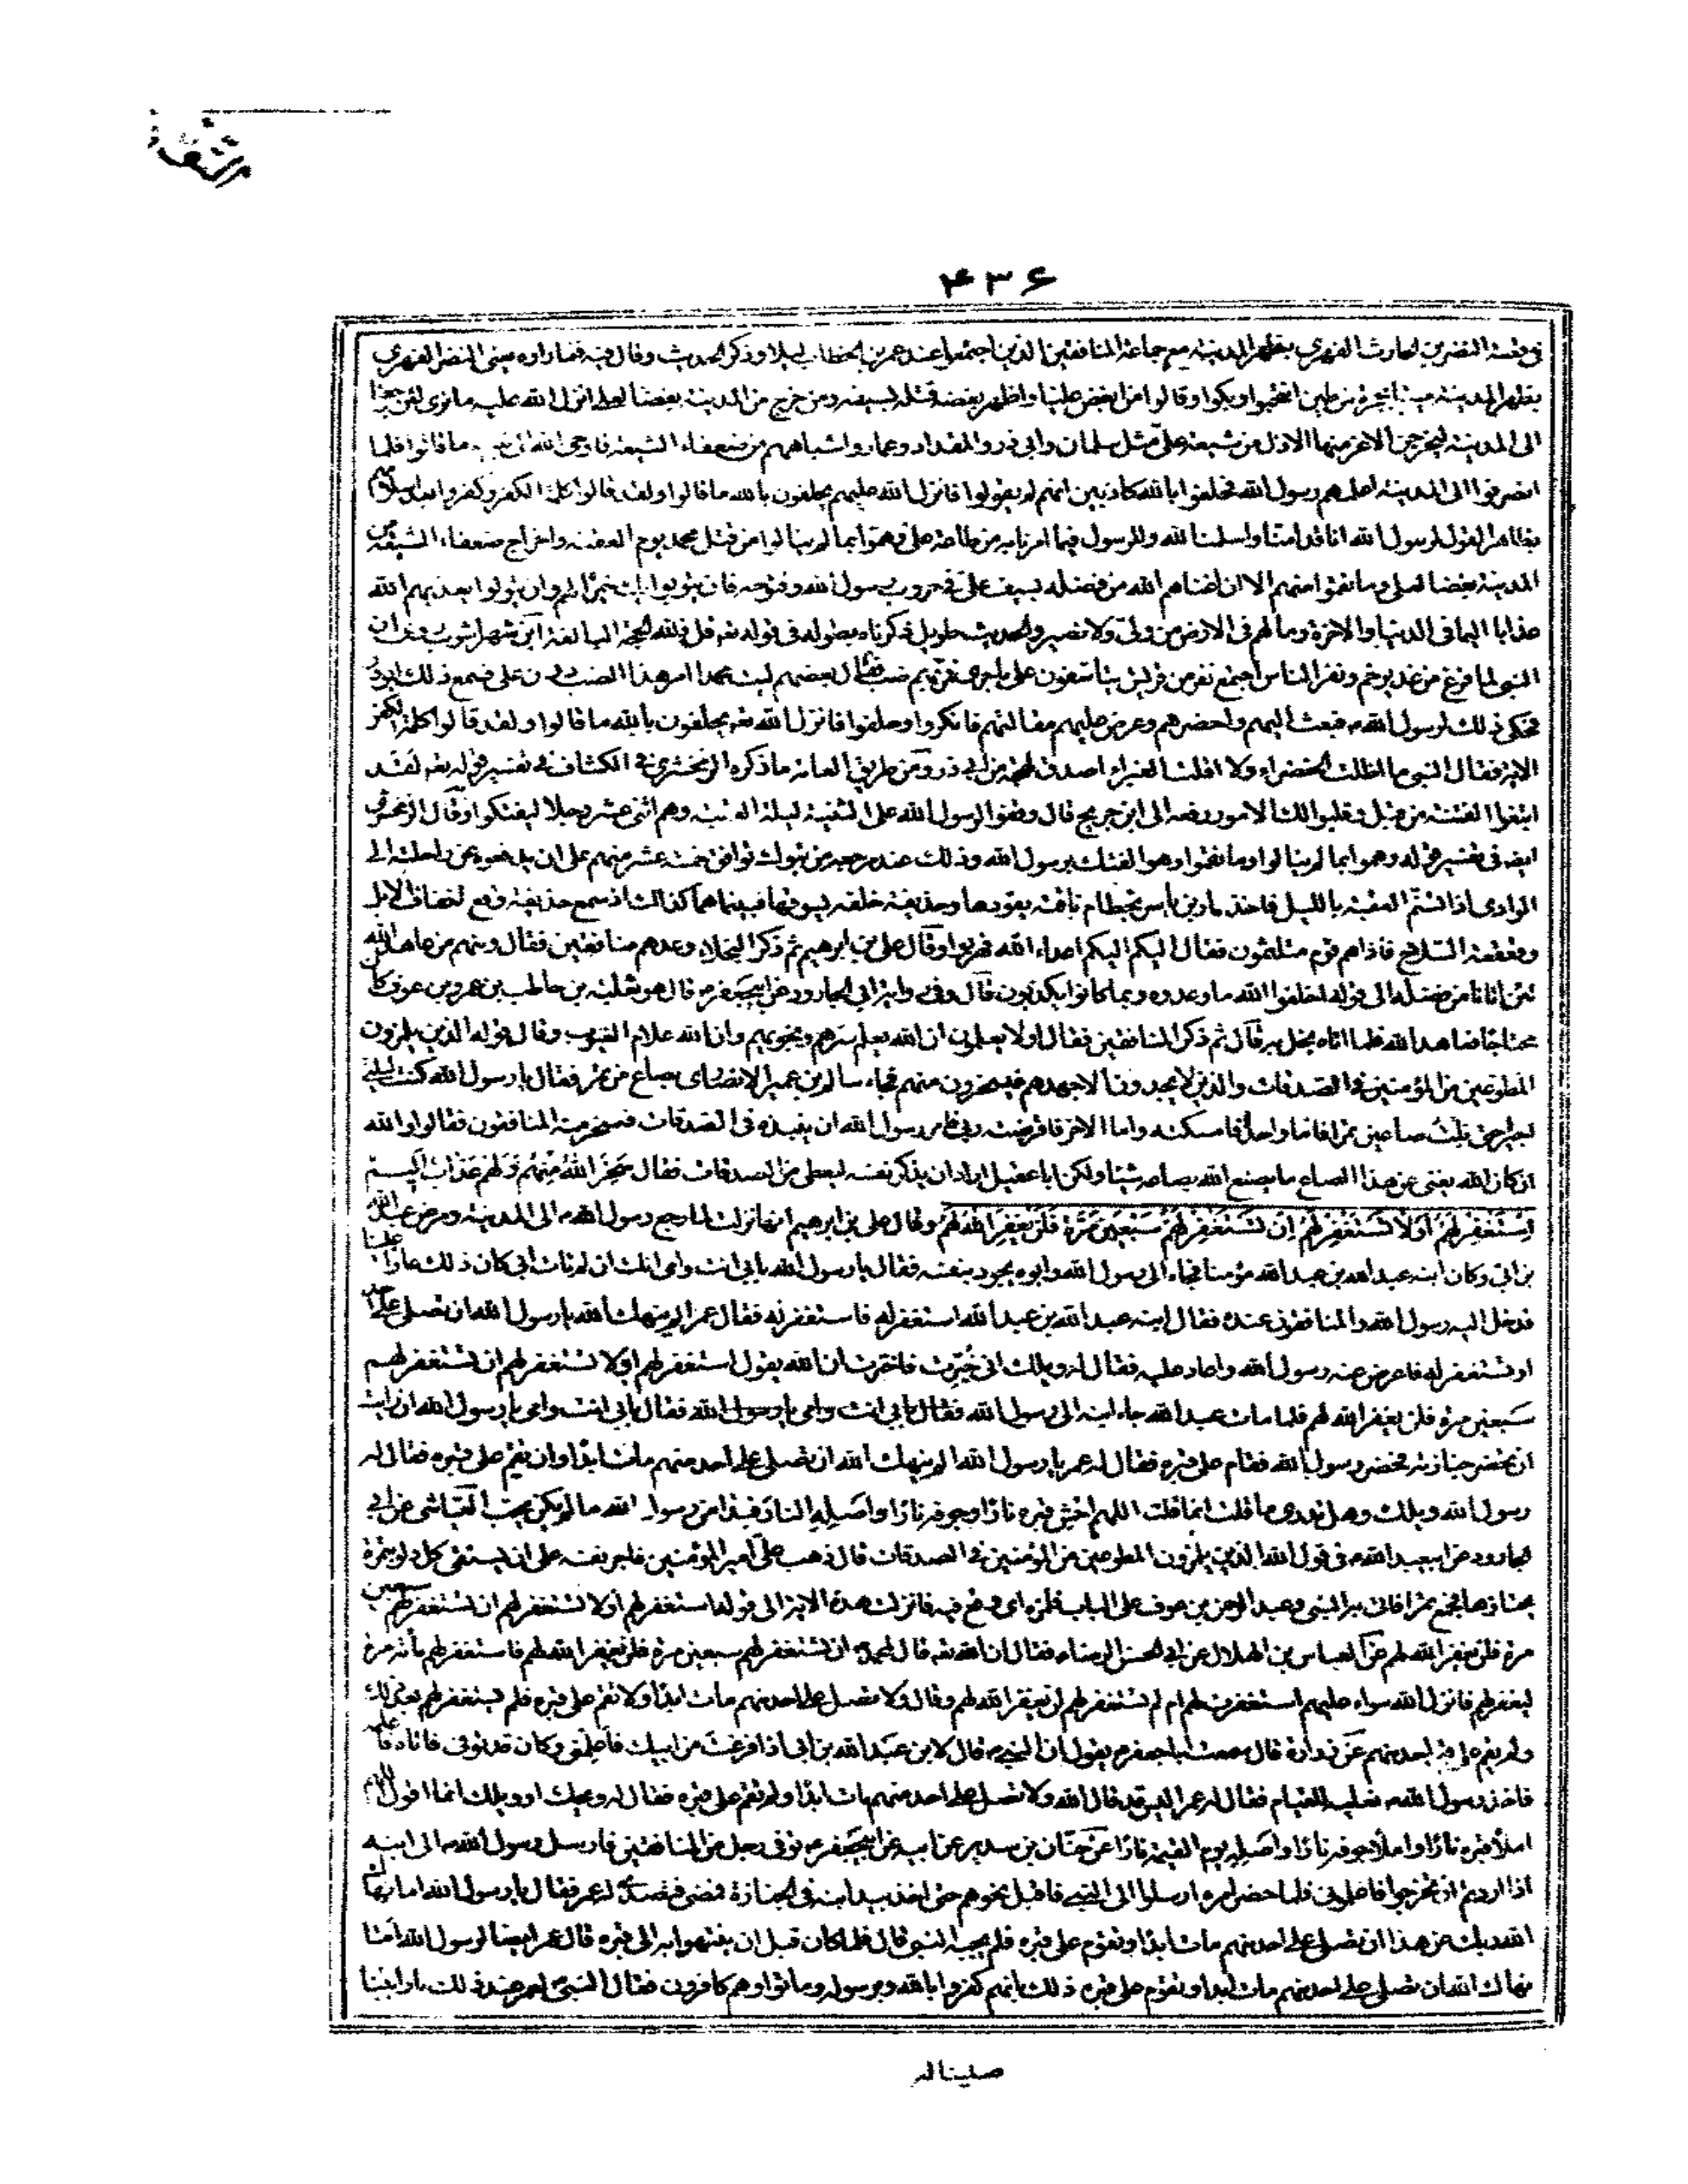 ۴۳۶
في قصة النضر بن الحارث الفهري بظهر المدينة مع جماعة المنافقين الذين اجتمعوا عند عمر بن الخطاب ليلا وذكر الحديث وقال فيه فما راوه ميتى النضر الفهري
بظهر المدينة ميتا بحجرة من طين انتحبوا وبكوا وقالوا من ابغض عليا واظهر بغضه قتله بسيفه ومن خرج من المدينة بغضا لعلي انزل الله عليه ما نرى لئن رجعنا
الى المدينة ليخرجن الاعز منها الاذل من شيعة علي مثل سلمان وابي ذر والمقداد وعمار واشباههم من ضعفاء الشيعة فاوحى الله الى نبيه ما قالوا فلما
انصرفوا الى المدينة اعلمهم رسول الله فحلفوا بالله كاذبين انهم لم يقولوا فانزل الله عليهم يحلفون بالله ما قالوا ولقد قالوا كلمة الكفر وكفروا بعد اسلامهم
بظاهر القول لرسول الله انا قد امنا واسلمنا لله وللرسول فيما امرنا به من طاعة علي وهموا بما لم ينالوا من قتل محمد يوم العقبة واخراج ضعفاء الشيعة من
المدينة بغضا لعلي وما نقموا منهم الا ان اغناهم الله من فضله بسيف علي في حروب رسول الله وفتوحه فان يتوبوا يك خيرا لهم وان يتولوا يعذبهم الله
عذابا اليما في الدنيا والاخرة وما لهم في الارض من ولي ولا نصير والحديث طويل ذكرناه بطوله في قوله تعه قل فلله الحجة البالغة ابن شهر اشوب روى ان
النبي لما فرغ من غدير خم وتفرق الناس اجتمع نفر من قريش يتاسفون على ما جرى فمر بهم ضب فقال بعضهم ليت محمدا امر هذا الضب دون علي فسمع ذلك ابو ذر
فحكى ذلك لرسول الله ص فبعث اليهم واحضرهم وعرض عليهم مقالتهم فانكروا وحلفوا فانزل الله تعه يحلفون بالله ما قالوا ولقد قالوا كلمة الكفر
الاية فقال النبي ما اظلت الخضراء ولا اقلت الغبراء اصدق لهجة من ابي ذر ومن طريق العامة ما ذكره الزمخشري في الكشاف في تفسير قوله تعه لقد
ابتغوا الفتنة من قبل وقلبوا لك الامور رفعه الى ابن جريج قال وقفوا لرسول الله على الثنية ليلة العقبة وهم اثنى عشر رجلا ليفتكوا وقال الزمخشري
ايضا في تفسير قوله وهموا بما لم ينالوا وما نقموا وهو الفتك برسول الله وذلك عند مرجعه من تبوك توافق خمسة عشر منهم على ان يدفعوه عن راحلته الى
الوادي اذا تسنم العقبة بالليل فاخذ عمار بن ياسر بخطام ناقته يقودها وحذيفة خلفه يسوقها فبينما هما كذلك اذ سمع حذيفة وقع اخفاف الابل
وقعقعة السلاح فاذا هم قوم متلثمون فقال اليكم اليكم اعداء الله فهربوا وقال علي بن ابرهيم ثم ذكر البخلاء وعدهم منافقين فقال ومنهم من عاهد الله
لئن اتانا من فضله الى قوله اخلفوا الله ما وعدوه وبما كانوا يكذبون قال وفي رواية ابي الجارود عن ابي جعفر ع قال هو ثعلبة بن حاطب بن عمرو بن عوف كان
محتاجا فعاهد الله فلما اتاه بخل به قال ثم ذكر المنافقين فقال اولا يعلمون ان الله يعلم سرهم ونجويهم وان الله علام الغيوب وقال قوله الذين يلمزون
المطوعين من المؤمنين في الصدقات والذين لا يجدون الا جهدهم فيسخرون منهم فجاء سالم بن عمير الانصاري بصاع من تمر فقال يا رسول الله كنت ليلتي
اجير الجرير حتى نلت صاعين تمرا فاما واحدا فامسكته واما الاخر فاقرضته ربي فامر رسول الله ان ينبذه في الصدقات فسخر منه المنافقون فقالوا والله
ان كان الله يغني عن هذا الصاع ما يصنع الله بصاعه شيئا ولكن ابا عقيل اراد ان يذكر نفسه ليعطى من الصدقات فقال سخر الله منهم ولهم عذاب اليم
استغفر لهم او لا تستغفر لهم ان تستغفر لهم سبعين مرة فلن يغفر الله لهم وقال علي بن ابرهيم انها نزلت لما رجع رسول الله ص الى المدينة ومرض عبد الله
بن ابي وكان ابنه عبد الله بن عبد الله مؤمنا فجاء الى رسول الله وابوه يجود بنفسه فقال يا رسول الله بابي انت وامي انك ان لم تات ابي كان ذلك عارا علينا
فدخل اليه رسول الله والمنافقون عنده فقال ابنه عبد الله بن عبد الله استغفر له فاستغفر له فقال عمر الم ينهك الله يا رسول الله ان تصلي على احد
او تستغفر له فاعرض عنه رسول الله واعاد عليه فقال له ويلك اني خيرت فاخترت ان الله يقول استغفر لهم او لا تستغفر لهم ان تستغفر لهم
سبعين مرة فلن يغفر الله لهم فلما مات عبد الله جاء ابنه الى رسول الله فقال بابي انت وامي يا رسول الله فقال بابي انت وامي يا رسول الله ان رايت
ان تحضر جنازته فحضر رسول الله فقام على قبره فقال له عمر يا رسول الله الم ينهك الله ان تصلي على احد منهم مات ابدا وان تقم على قبره فقال له
رسول الله ويلك وهل تدري ما قلت انما قلت اللهم احش قبره نارا وجوفه نارا واصله النار فبدا من رسول الله ما لم يكن يحب العياشي عن ابي
الجارود عن ابي عبد الله ع في قول الله الذين يلمزون المطوعين من المؤمنين في الصدقات قال ذهب علي امير المؤمنين فاجر نفسه على ان يستقي كل دلو بتمرة
يختارها فجمع تمرا فاتى به النبي وعبد الرحمن بن عوف على الباب فلمزه اي وقع فيه فانزلت هذه الاية الى قوله استغفر لهم او لا تستغفر لهم ان تستغفر لهم سبعين
مرة فلن يغفر الله لهم عن العباس بن الهلال عن ابي الحسن الرضا ع فقال ان الله تعه قال لمحمد ص ان تستغفر لهم سبعين مرة فلن يغفر الله لهم فاستغفر لهم مأئة مرة
ليغفر لهم فانزل الله سواء عليهم استغفرت لهم ام لم تستغفر لهم لن يغفر الله لهم وقال ولا تصل على احد منهم مات ابدا ولا تقم على قبره فلم يستغفر لهم بعد ذلك
ولم يقم على قبر احد منهم عن زرارة قال سمعت ابا جعفر ع يقول ان النبي ص قال لابن عبد الله بن ابي اذا فرغت من ابيك فاعلمني وكان قد توفى فاتاه فاعلمه
فاخذ رسول الله ص نعليه للقيام فقال له عمر اليس قد قال الله ولا تصل على احد منهم مات ابدا ولا تقم على قبره فقال له ويحك او ويلك انما اقول اللهم
املأ قبره نارا واملأ جوفه نارا واصله يوم القيمة نارا عن حنان بن سدير عن ابيه عن ابي جعفر ع توفى رجل من المنافقين فارسل رسول الله ص الى ابنه
اذا اردتم ان تخرجوا فاعلموني فلما حضر امره ارسلوا الى النبي فاقبل نحوهم حتى اخذ بيد ابنه في الجنازة فمضى فتصدى له عمر فقال يا رسول الله اما نهاك
الله ربك عن هذا ان تصلي على احد منهم مات ابدا او تقوم على قبره فلم يجبه النبي قال فلما كان قبل ان ينتهوا به الى قبره قال عمر ايضا لرسول الله اما
نهاك الله ان تصلي على احد منهم مات ابدا او تقوم على قبره ذلك بانهم كفروا بالله وبرسوله وماتوا وهم كافرون فقال النبي لعمر عند ذلك ما رايتنا
صلينا له